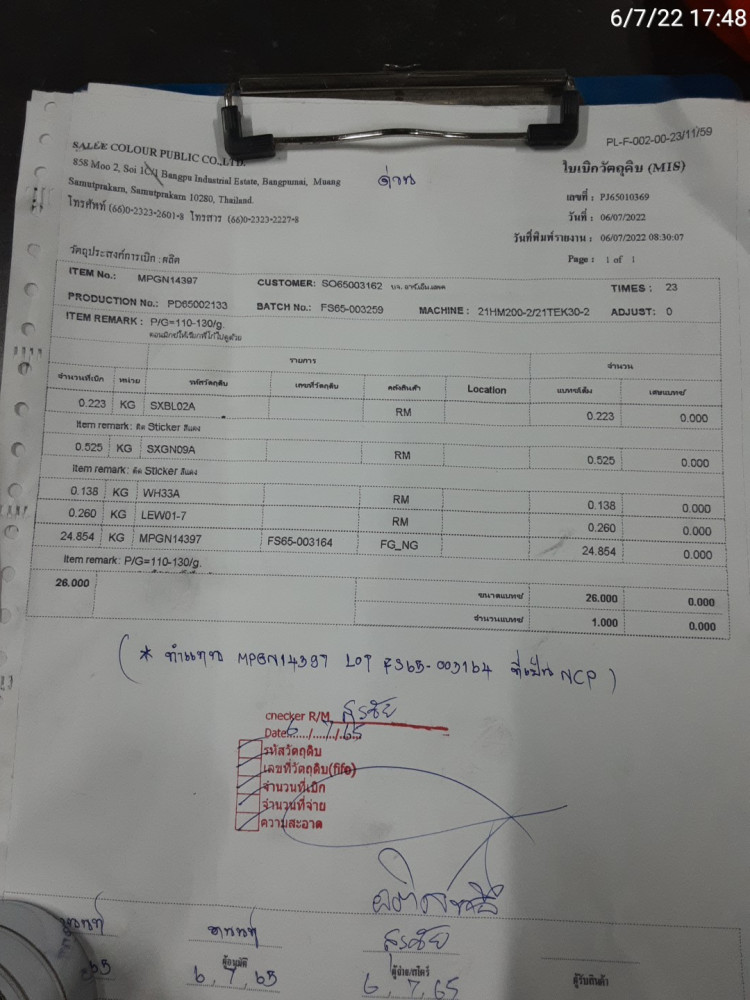 6/7/22 17:48
PL-F-002-00-23/11/59
SALEE COLOUR PUBLIC CO.,LTD.
858 Moo 2, Soi 1C/1 Bangpu Industrial Estate, Bangpumai, Muang
Samutprakarn, Samutprakarn 10280, Thailand.
โทรศัพท์ (66)0-2323-2601-8 โทรสาร (66)0-2323-2227-8
ด่วน
ใบเบิกวัตถุดิบ (MIS)
เลขที่ : PJ65010369
วันที่ : 06/07/2022
วันที่พิมพ์รายงาน : 06/07/2022 08:30:07
Page : 1 of 1
วัตถุประสงค์การเบิก : ผลิต
ITEM No.: MPGN14397 CUSTOMER: SO65003162 บจ. TIMES : 23
PRODUCTION No.: PD65002133 BATCH No.: FS65-003259 MACHINE : 21HM200-2/21TEK30-2 ADJUST: 0
ITEM REMARK : P/G=110-130/g.
รายการ จำนวน
จำนวนที่เบิก หน่วย รหัสวัตถุดิบ เลขที่วัตถุดิบ คลังสินค้า Location แบทช์เต็ม เศษแบทช์
0.223 KG SXBL02A RM 0.223 0.000
Item remark: ติด Sticker สีแดง
0.525 KG SXGN09A RM 0.525 0.000
Item remark: ติด Sticker สีแดง
0.138 KG WH33A RM 0.138 0.000
0.260 KG LEW01-7 RM 0.260 0.000
24.854 KG MPGN14397 FS65-003164 FG_NG 24.854 0.000
Item remark: P/G=110-130/g.
26.000 ขนาดแบทช์ 26.000 0.000
จำนวนแบทช์ 1.000 0.000
( * ทำแทน MPGN14397 LOT FS65-003164 ที่เป็น NCP )
checker R/M สุรชัย
Date 6/7/65
รหัสวัตถุดิบ
เลขที่วัตถุดิบ(fifo)
จำนวนที่เบิก
จำนวนที่จ่าย
ความสะอาด
สุรชัย
ผู้อนุมัติ ผู้จ่าย/สโตร์ ผู้รับสินค้า
6, 7, 65 6, 7, 65